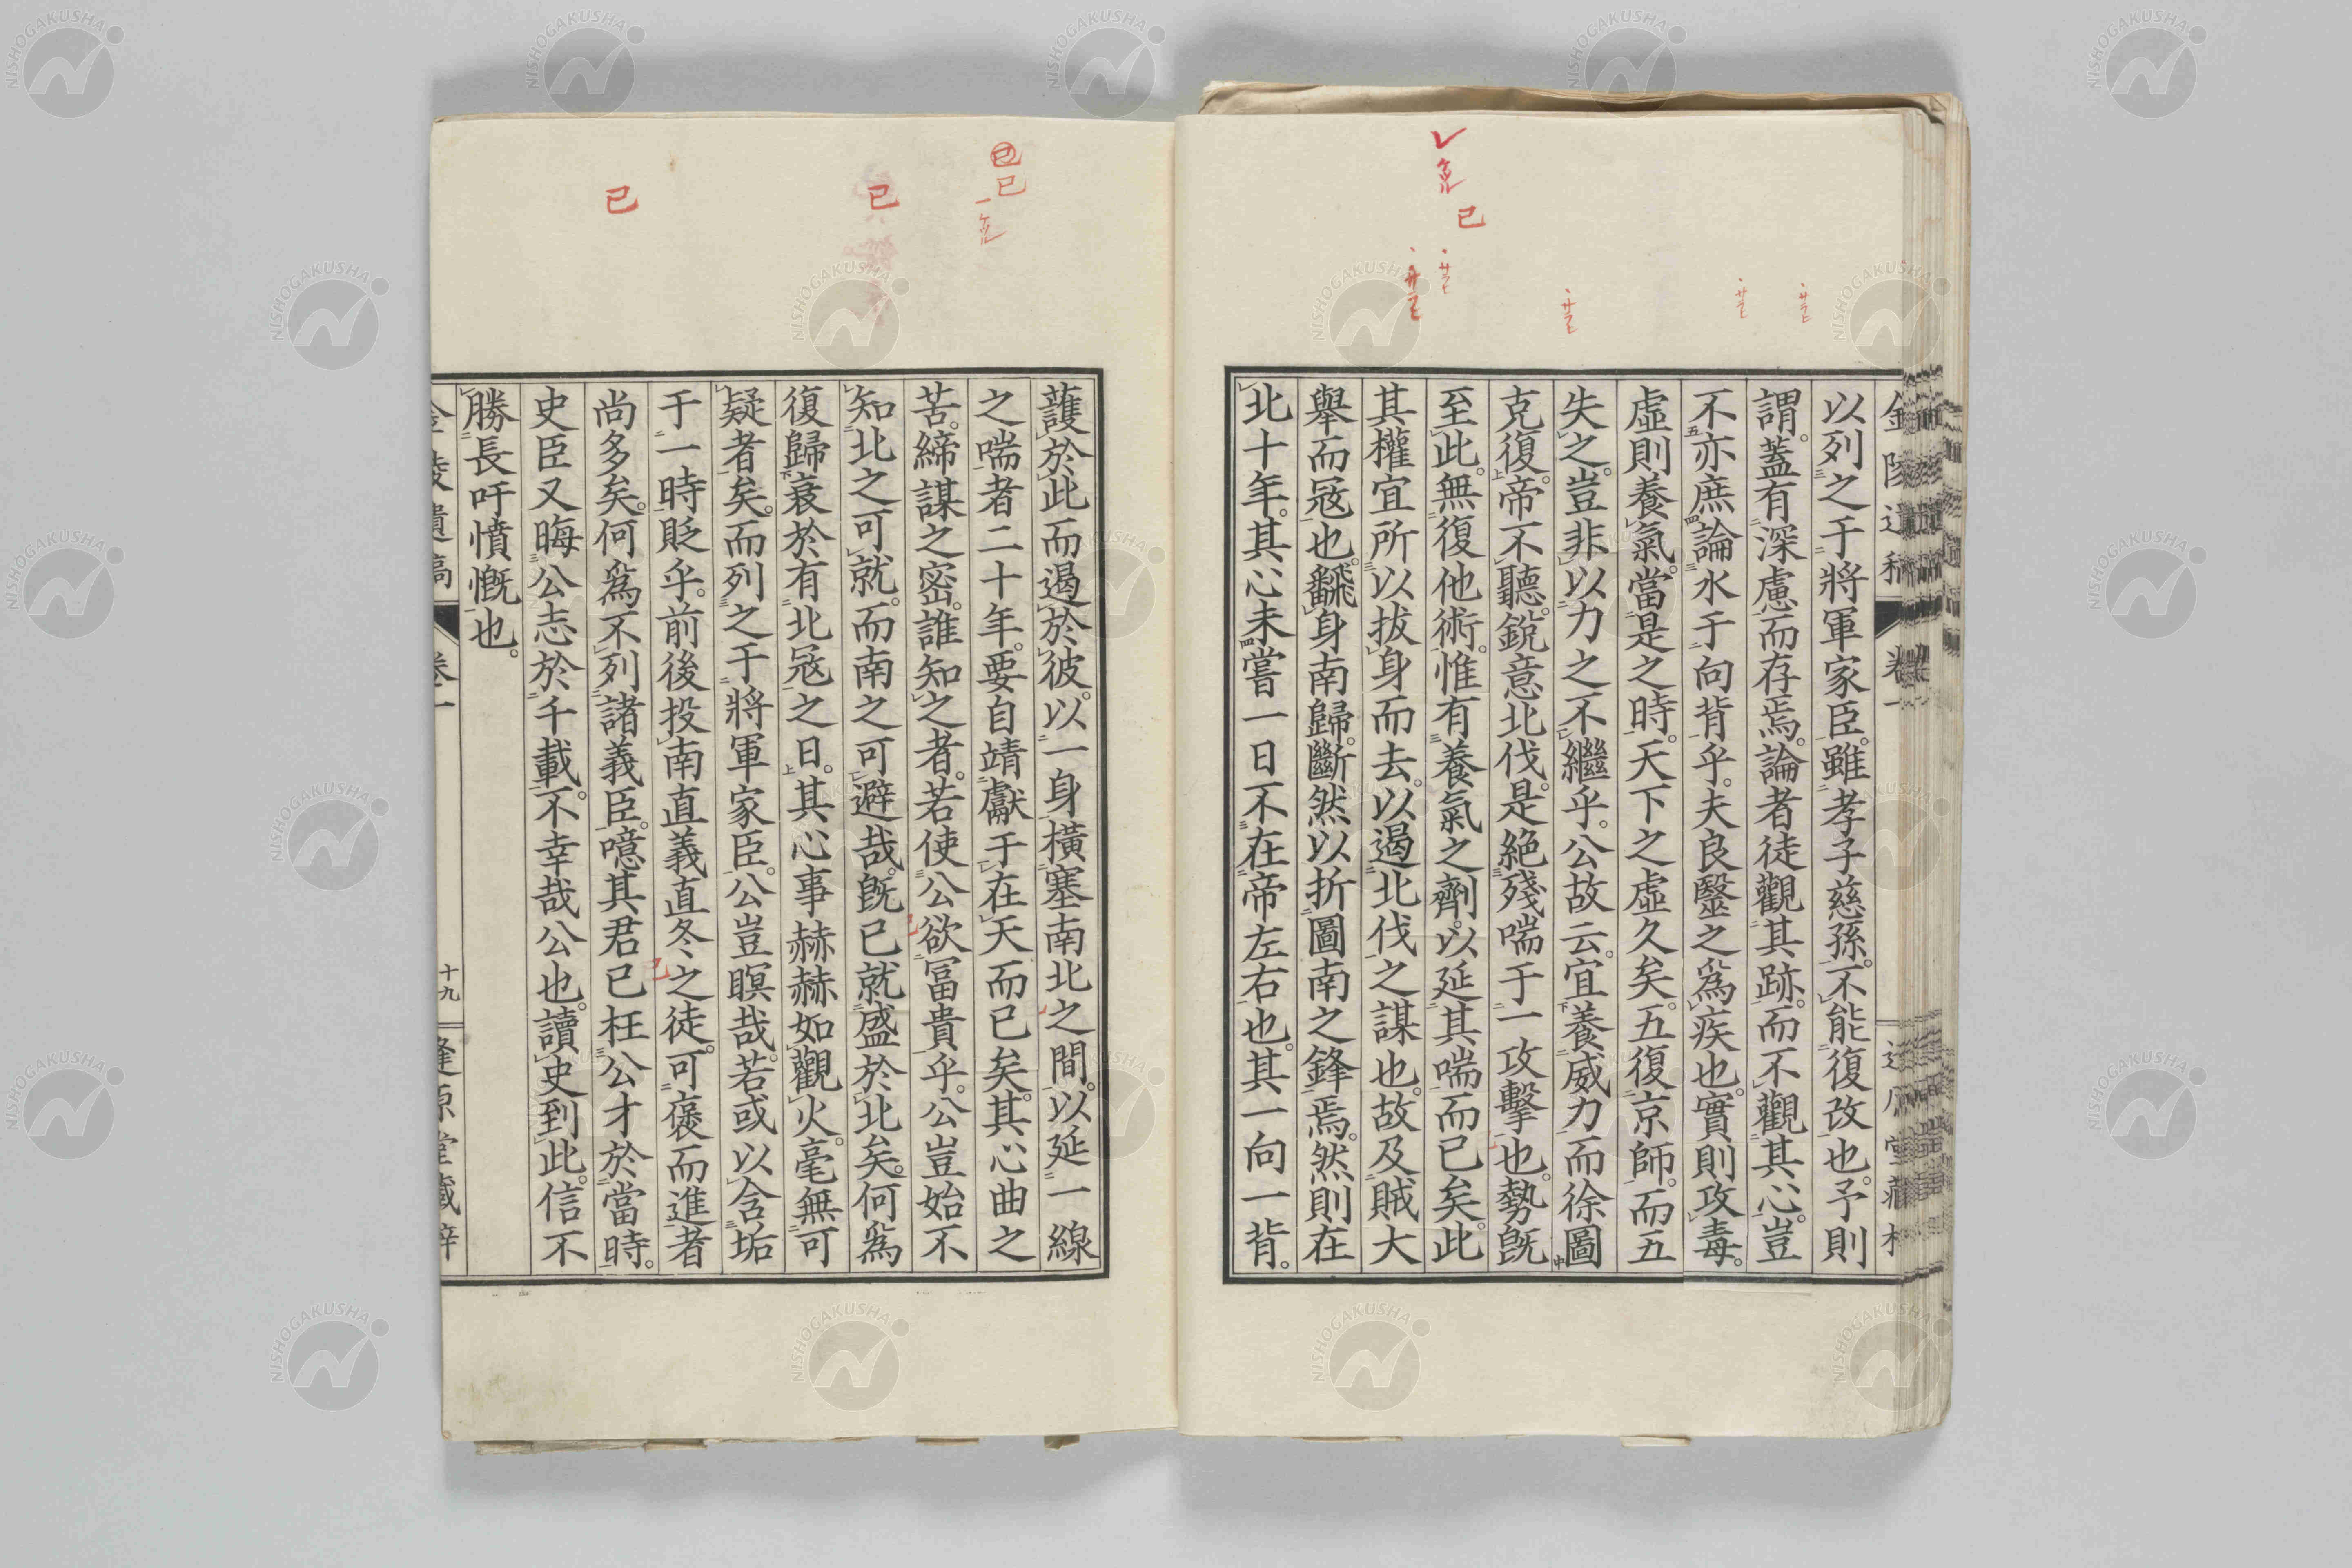 以列之于將軍家臣。雖孝子慈孫。不能復改也。予則
謂。蓋有深慮而存焉。論者徒觀其跡。而不觀其心。豈
不亦庶論水于向背乎。夫良醫之爲疾也。實則攻毒。
虛則養氣。當是之時。天下之虛久矣。五復京師。而五
失之。豈非以力之不繼乎。公故云。宜養威力而徐圖
克復。帝不聽。銳意北伐。是絕殘喘于一攻擊也。勢既
至此。無復他術。惟有養氣之劑。以延其喘而已矣。此
其權宜所以拔身而去。以遏北伐之謀也。故及賊大
舉而寇也。飜身南歸。斷然以折圖南之鋒焉。然則在
北十年。其心未嘗一日不在帝左右也。其一向一背。
護於此而遏於彼。以一身橫塞南北之間。以延一線
之喘者二十年。要自靖獻于在天而已矣。其心曲之
苦。締謀之密。誰知之者。若使公欲冨貴乎。公豈始不
知北之可就。而南之可避哉。既已就盛於北矣。何爲
復歸衰於有北寇之日。其心事赫赫如觀火。毫無可
疑者矣。而列之于將軍家臣。公豈瞑哉。若或以含垢
于一時貶乎。前後投南直義直冬之徒。可褒而進者
尚多矣。何爲不列諸義臣。噫其君已枉公才於當時。
史臣又晦公志於千載。不幸哉公也。讀史到此。信不
勝長吁憤慨也。
十九
NISHOGAKUSHA